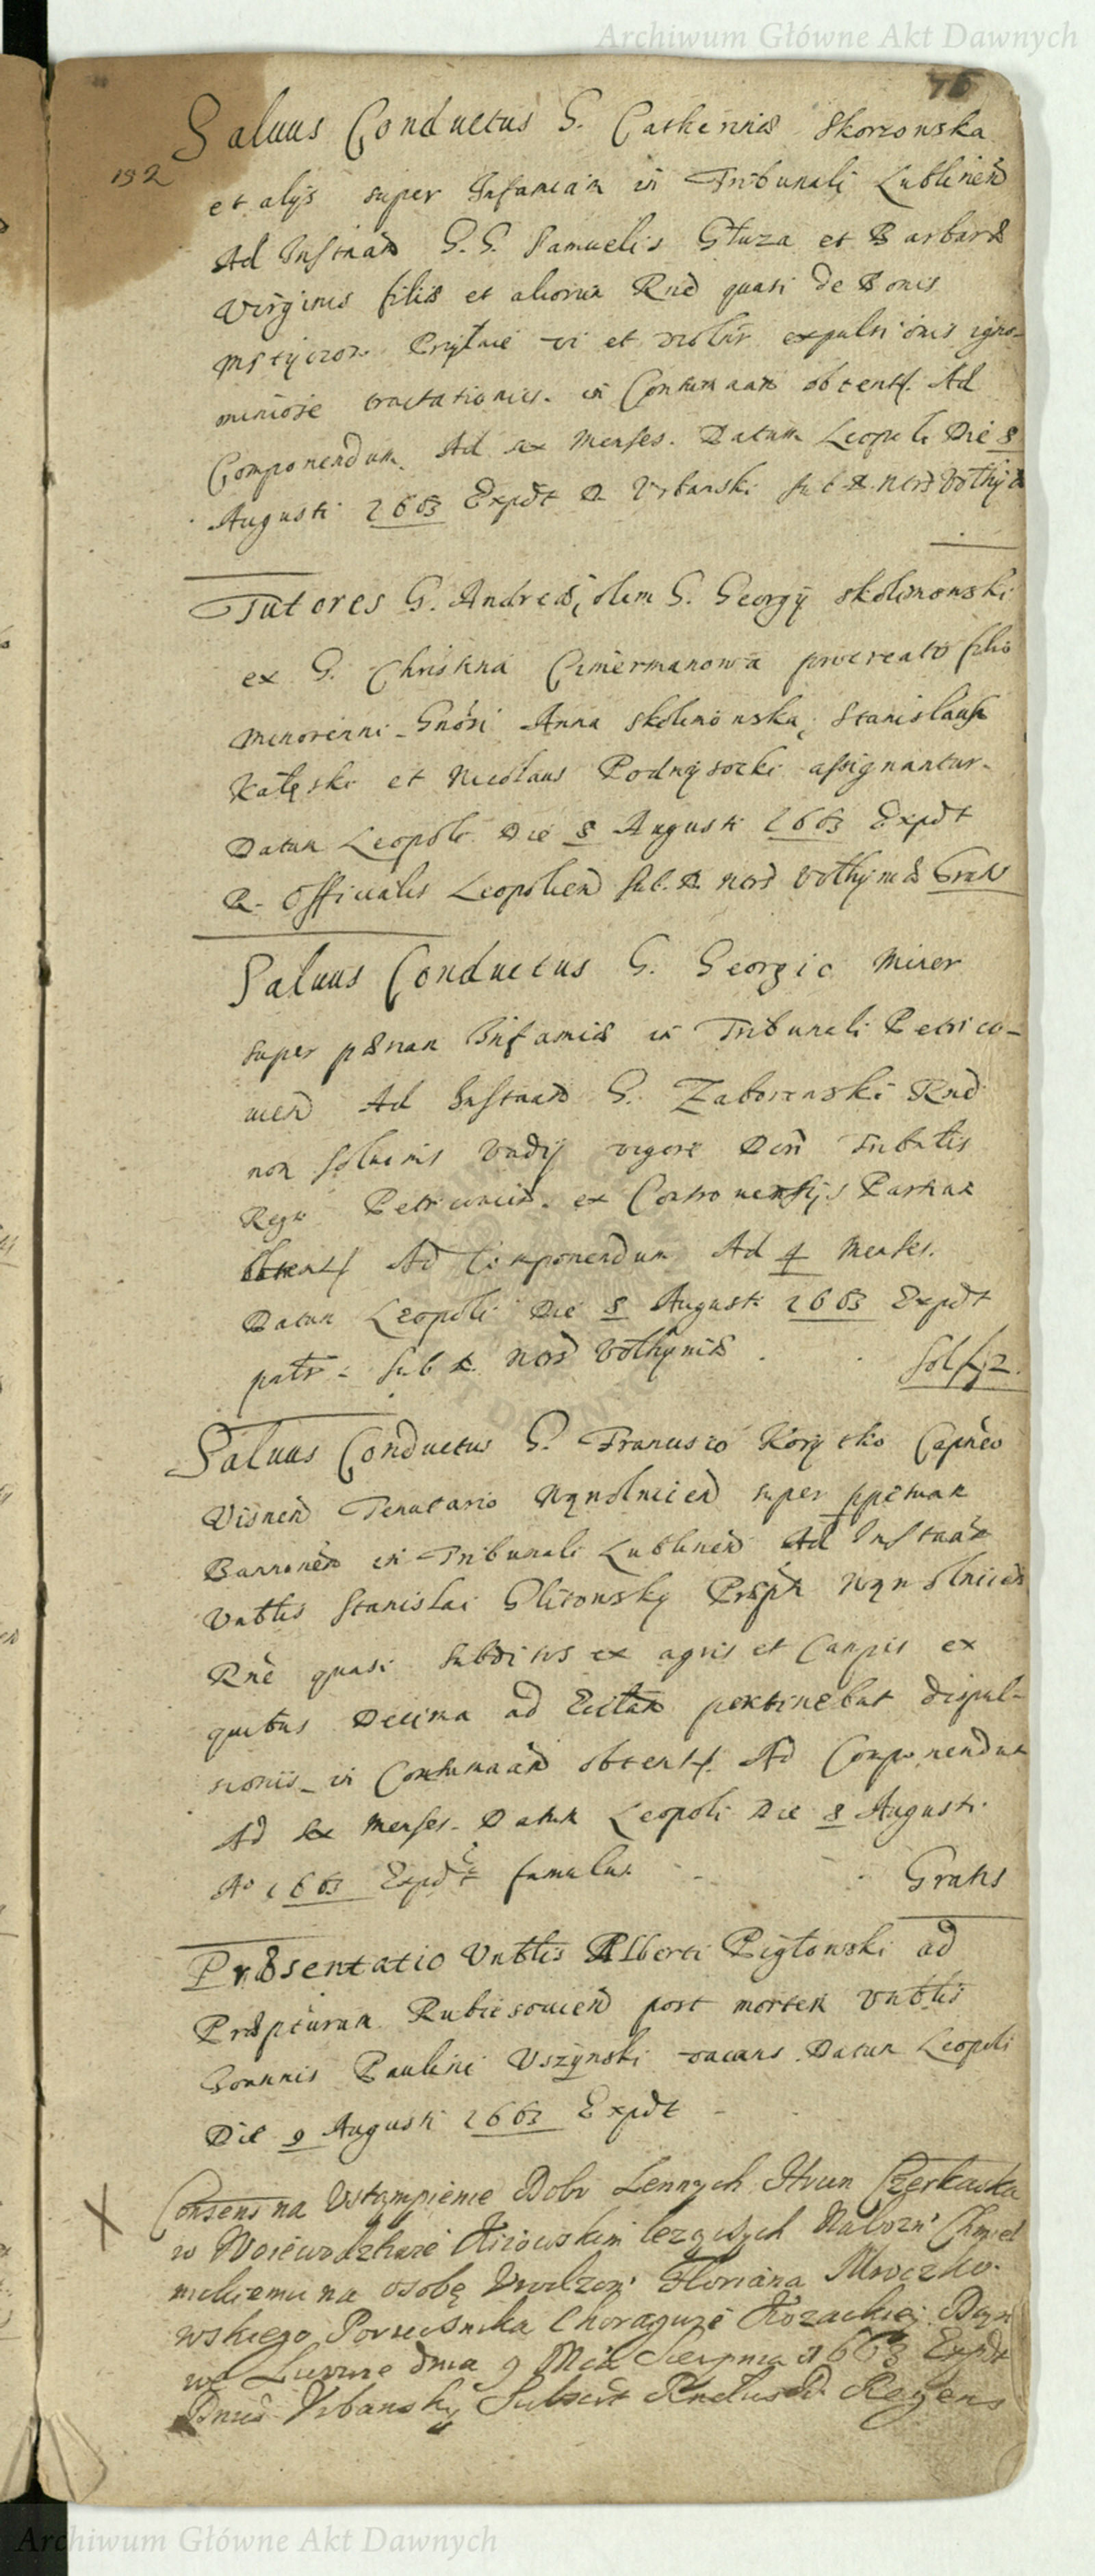 Archiwum Główne Akt Dawnych
76
Saluus Conductus G. Catherinæ Skorzowska
152
et alijs super Infamiam in Tribunali Lublinen
Ad Instnãn G. G. Samuelis Głuza et Barbaræ
Virginis filiæ et aliorum Rne quasi de Bonis
vi et expulsionis igno-
miniose tractationis. in Contumaam obtent. Ad
Componendum. Ad sex Menses. Datum Leopoli Die 8
Augusti 1663 Expdt D Vrbanski sub S. Nris Vołhyn
Tutores G. Andreæ, olim G. Georgij Skolimowski
ex G. Christina Cimermanowa procreato filio
Minorenni - Gnosi Anna Skolimowska, Stanislaus
Kałęski et Nicolaus Podwysocki assignantur.
Datum Leopoli Die 8 Augusti 1663 Expdt
R. Officialis Leopolien Sub. S. Nris Vołhyniæ Gratis
Saluus Conductus G. Georgio Mirer
super pænam Infamiæ in Tribunali Petrico-
uien Ad Instnan G. Zaborowski Rne
non solucinis Vadij vigore Dcri Tribnlis
Regni Petricouien. ex Controuersijs Partium
obtent Ad Componendum Ad 4 Menses.
Datum Leopoli Die 8 Augusti 1663 Expdt
patr - Sub S. Nris Vołhyniæ . . Sol
Saluus Conductus G. Francisco Korytko Capneo
Visnen Tenutario Wqwolnicien super ppetuam
Bannonem in Tribunali Lublinen Ad Instnan
Vnblis Stanislai Glitowsky Præpti Wqwolnicien
Rne quasi subditos ex agris et Campis ex
quibus Decima ad Eccliam pertinebat dispul-
sionis - in Contumaan obtent. Ad Componendum
Ad sex Menses. Datum Leopoli Die 8 Augusti.
Ao 1663 Expdt famulus - - . Gratis
Præsentatio Vnblis Alberti Pigłowski ad
Præpturam Rubiesouien post mortem Vnblis
Joannis Paulini Vszynski vacans. Datum Leopoli
Die 9 Augusti 1663 Expdt -
X Consens na Vstąmpienie Dobr Lennych Czerkaska
w Woiewodztwie Kiiowskim lezących Chmiel
nickiemu na osobę Vrodzon Floriana Mroczko-
wskiego Porucznika Choragwie Kozackiej Dan
we Lwowie dnia 9 Mca Sierpnia 1663 Expdt
Dnus Vrbansky Subscit Regens
Archiwum Główne Akt Dawnych